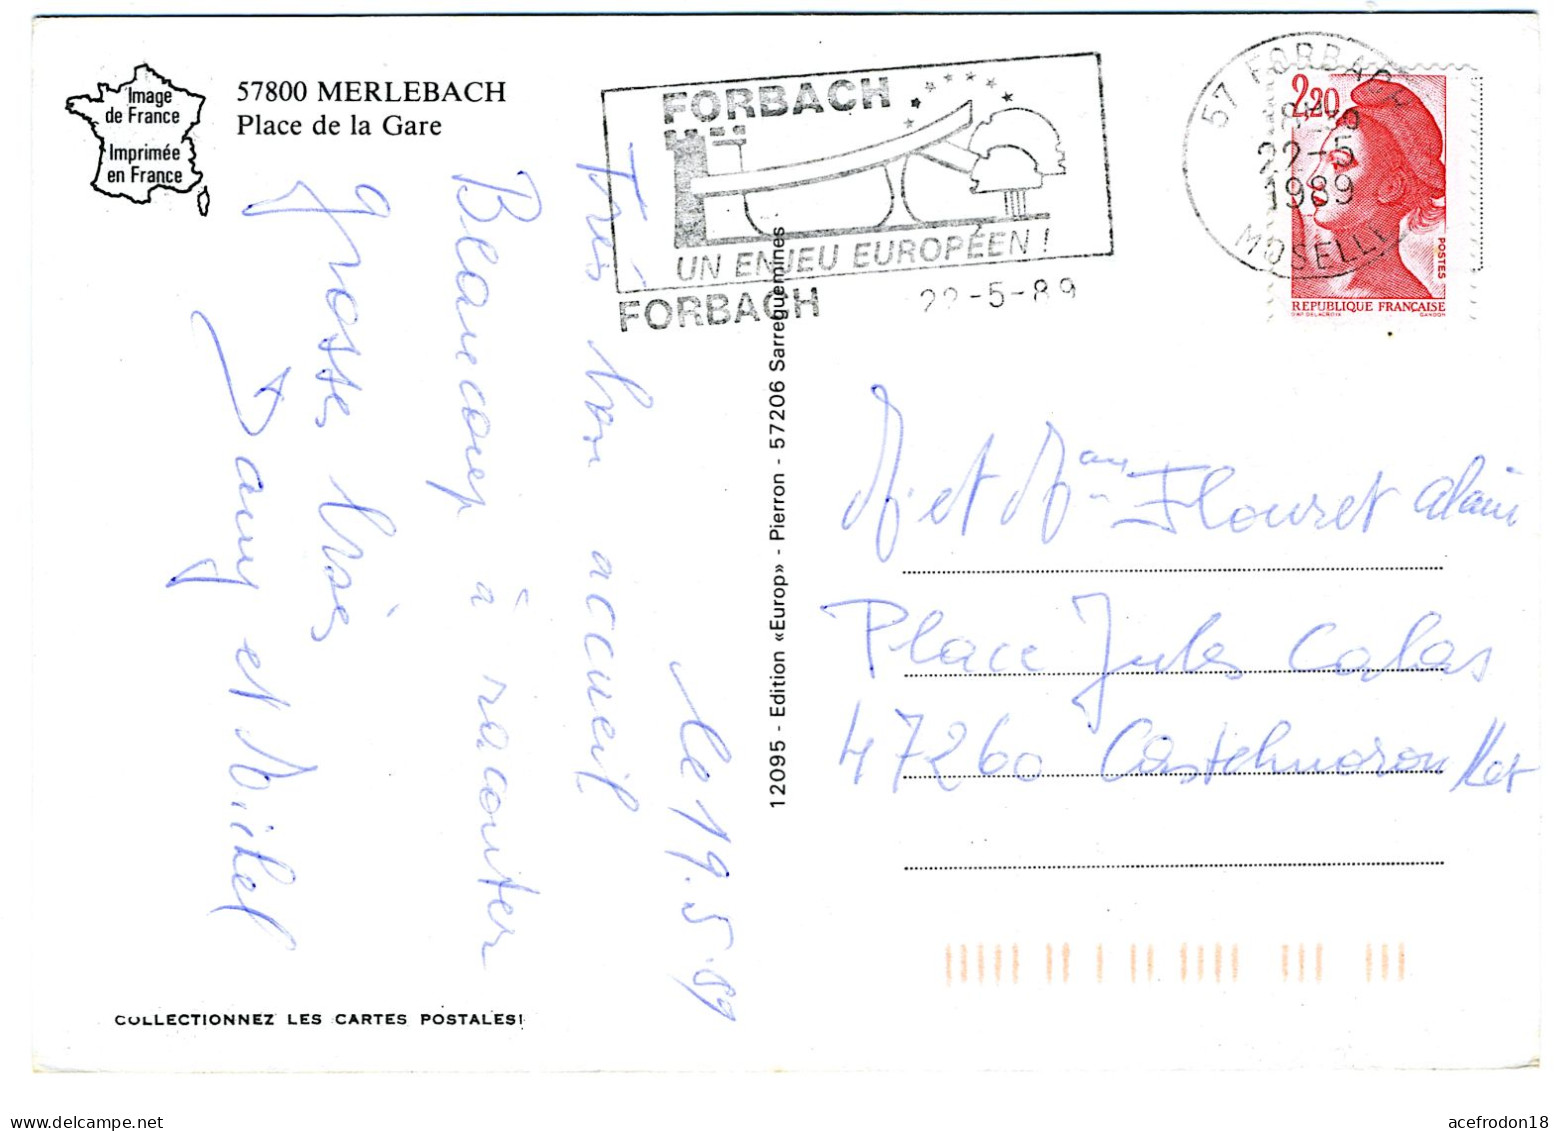 Image
de France
Imprimée
en France
57800 MERLEBACH
Place de la Gare
le 19.5.89
Très bon accueil
Beaucoup à raconter
grosses bises
Dany et Michel
COLLECTIONNEZ LES CARTES POSTALES!
12095 - Edition «Europ» - Pierron - 57206 Sarreguemines
FORBACH
UN ENJEU EUROPÉEN !
FORBACH
22-5-89
57 FORBACH
22-5
1989
MOSELLE
2,20
POSTES
REPUBLIQUE FRANÇAISE
D'AP. DELACROIX GANDON
M. et Mme Flouret Alain
Place Jules Calas
47260 Castelmoron/Lot
acefrodon18